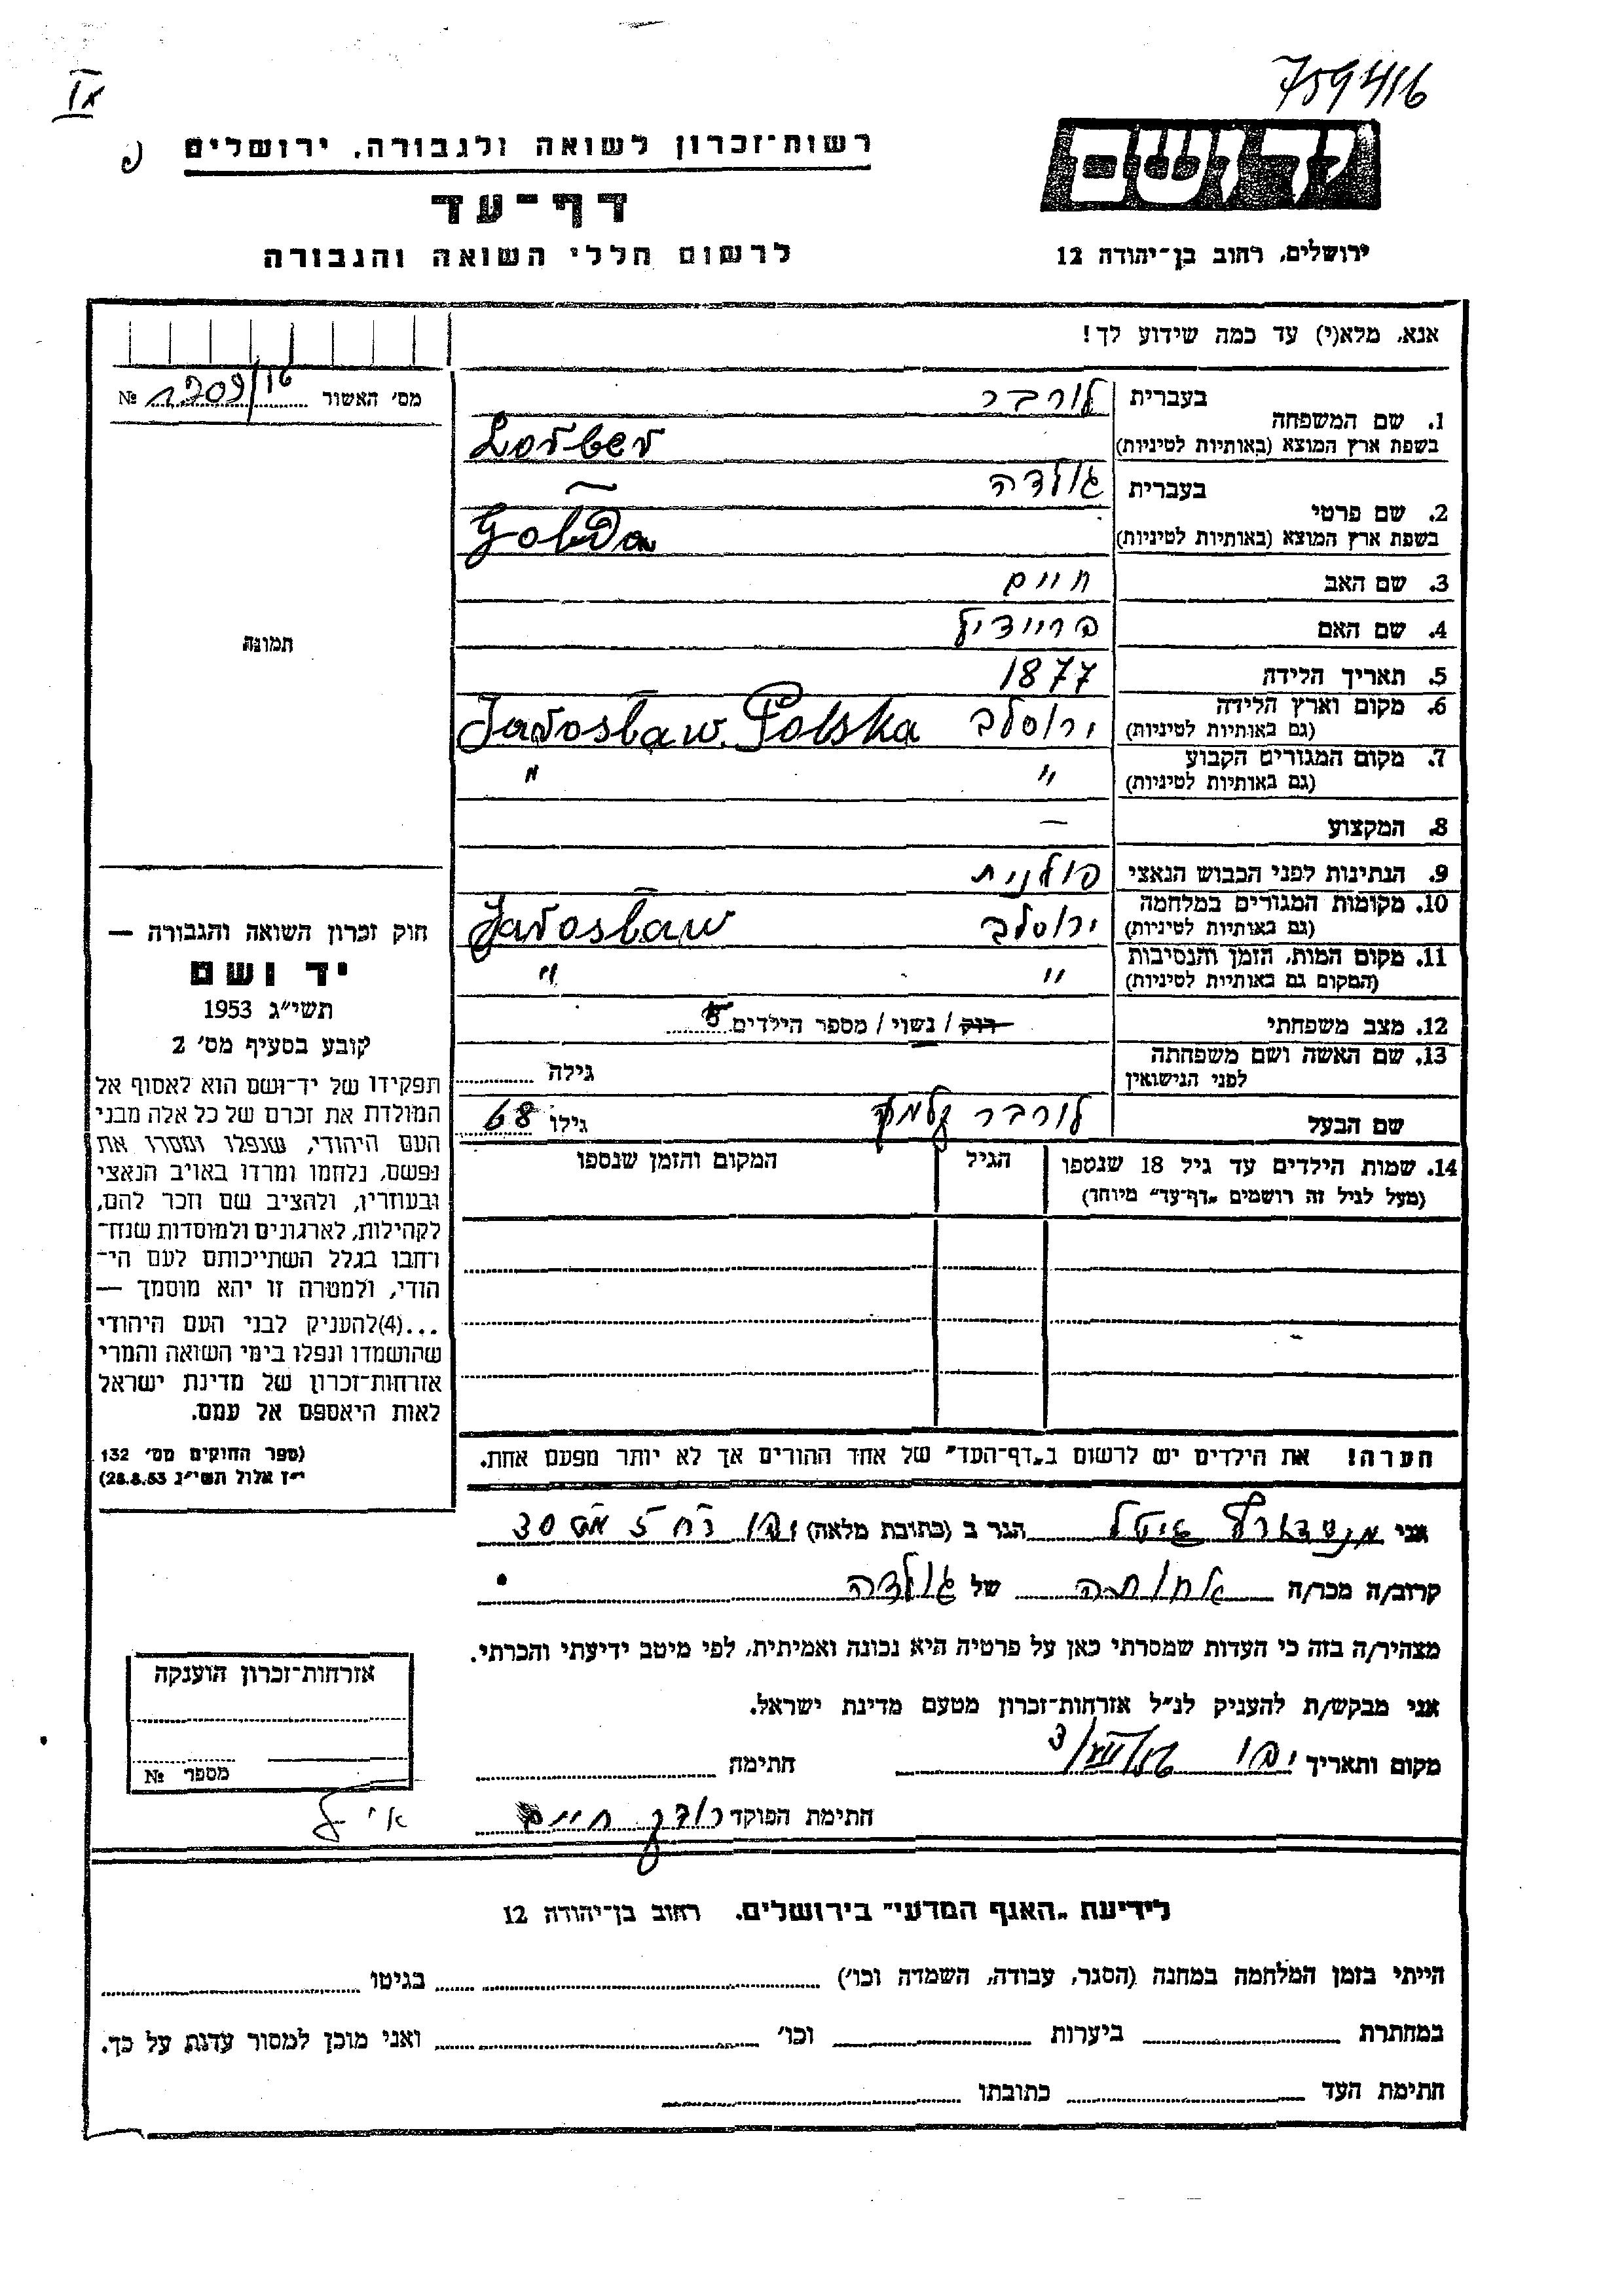 759416
רשות־זכרון לשואה ולגבורה, ירושלים
דף־עד
לרשום חללי השואה והגבורה
ירושלים, רחוב בן־יהודה 12
אנא, מלא(י) עד כמה שידוע לך!
מס׳ האשור 1709/16 №
1. שם המשפחה בעברית לורבר
בשפת ארץ המוצא (באותיות לטיניות) Lorber
2. שם פרטי בעברית גולדה
בשפת ארץ המוצא (באותיות לטיניות) Golda
3. שם האב חיים
4. שם האם פריידיל
תמונה
5. תאריך הלידה 1877
6. מקום וארץ הלידה ירוסלב Jarosław. Polska
(גם באותיות לטיניות)
7. מקום המגורים הקבוע " "
(גם באותיות לטיניות)
8. המקצוע –
9. הנתינות לפני הכבוש הנאצי פולנית
10. מקומות המגורים במלחמה ירוסלב Jarosław
(גם באותיות לטיניות)
11. מקום המות, הזמן והנסיבות " "
(המקום גם באותיות לטיניות)
12. מצב משפחתי רוק / נשוי / מספר הילדים 5
13. שם האשה ושם משפחתה גילה
לפני הנישואין
שם הבעל לורבר גילו 68
14. שמות הילדים עד גיל 18 שנספו הגיל המקום והזמן שנספו
(מעל לגיל זה רושמים „דף־עד״ מיוחד)
חוק זכרון השואה והגבורה —
יד ושם
תשי״ג 1953
קובע בסעיף מס׳ 2
תפקידו של יד־ושם הוא לאסוף אל
המולדת את זכרם של כל אלה מבני
העם היהודי, שנפלו ומסרו את
נפשם, נלחמו ומרדו באויב הנאצי
ובעוזריו, ולהציב שם וזכר להם,
לקהילות, לארגונים ולמוסדות שנח־
רחבו בגלל השתייכותם לעם הי־
הודי, ולמטרה זו יהא מוסמך —
...(4)להעניק לבני העם היהודי
שהושמדו ונפלו בימי השואה והמרי
אזרחות־זכרון של מדינת ישראל
לאות היאספם אל עמם.
(ספר החוקים מס׳ 132
י״ז אלול תשי״ג 28.8.53)
הערה! את הילדים יש לרשום ב„דף־העד״ של אחד ההורים אך לא יותר מפעם אחת.
אני הגר ב (כתובת מלאה) 30
קרוב/ה מכר/ה אחותה של גולדה
מצהיר/ה בזה כי העדות שמסרתי כאן על פרטיה היא נכונה ואמיתית, לפי מיטב ידיעתי והכרתי.
אני מבקש/ת להעניק לנ״ל אזרחות־זכרון מטעם מדינת ישראל.
מקום ותאריך חתימה
חתימת הפוקד חיים
אזרחות־זכרון הוענקה
מספר №
לידיעת „האגף המדעי״ בירושלים, רחוב בן־יהודה 12
הייתי בזמן המלחמה במחנה (הסגר, עבודה, השמדה וכו׳) בגיטו
במחתרת ביערות וכו׳ ואני מוכן למסור עדות על כך.
חתימת העד כתובתו